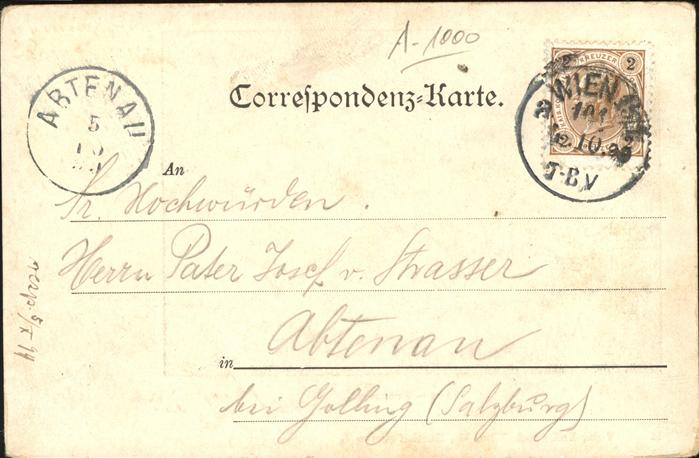 A-1000
Correspondenz-Karte.
2 KREUZER 2
WIEN
10.
T-B.V
ABTENAU
5
10
An
Sr. Hochwürden.
Herrn Pater Josef v. Strasser
in Abtenau
bei Golling (Salzburg)